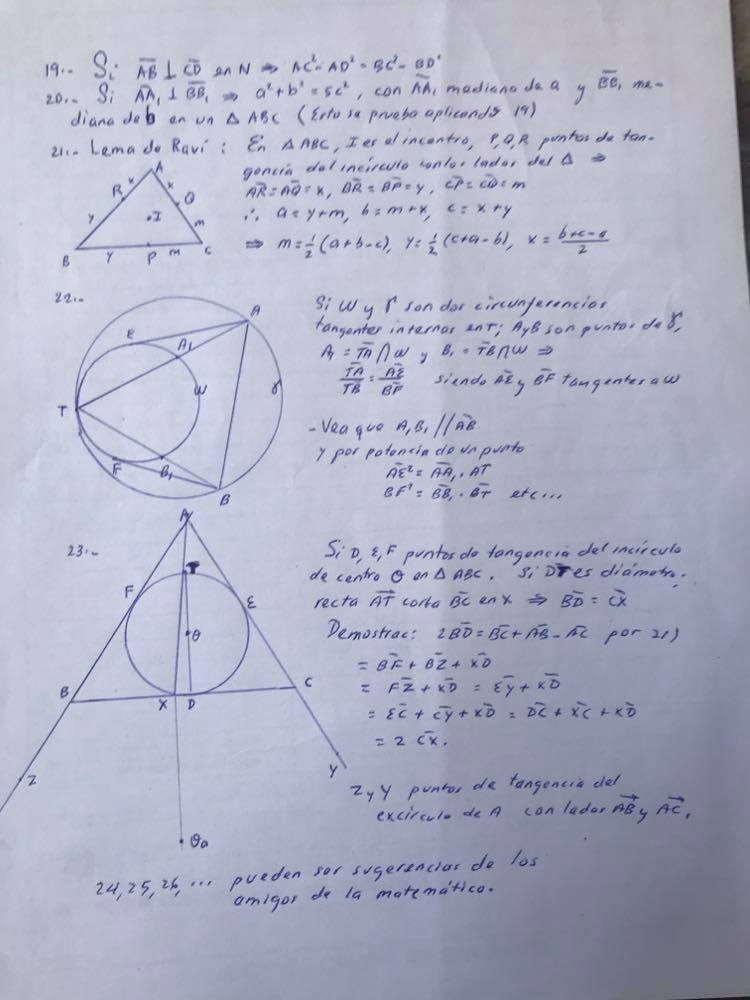 19.- Si AB ⊥ CD en N ⇒ AC² - AD² = BC² - BD²
20.- Si AA₁ ⊥ BB₁ ⇒ a² + b² = 5c², con AA₁ mediana de a y BB₁ me-
diana de b en un △ ABC (Esto se prueba aplicando 19)
21.- Lema de Ravi: En △ ABC, I es el incentro, P, Q, R puntos de tan-
gencia del incírculo con los lados del △ ⇒
AR = AQ = x, BR = BP = y, CP = CQ = m
∴ a = y+m, b = m+x, c = x+y
⇒ m = 1/2 (a+b-c), y = 1/2 (c+a-b), x = b+c-a/2
A
x
x
R
Q
y
I
m
B
y
P
m
C
22.-
Si ω y γ son dos circunferencias
tangentes internas en T; A y B son puntos de γ,
A₁ = TA ∩ ω y B₁ = TB ∩ ω ⇒
TA/TB = AE/BF siendo AE y BF tangentes a ω
- Vea que A₁B₁ // AB
y por potencia de un punto
AE² = AA₁ . AT
BF² = BB₁ . BT etc...
A
E
A₁
ω
γ
T
F
B₁
B
23.-
Si D, E, F puntos de tangencia del incírculo
de centro O en △ ABC. Si DT es diámetro,
recta AT corta BC en X ⇒ BD = CX
Demostrac: 2BD = BC + AB - AC por 21)
= BF + BZ + XD
= FZ + XD = EY + XD
= EC + CY + XD = DC + XC + XD
= 2 CX.
Z y Y puntos de tangencia del
excírculo de A con lados AB y AC,
A
T
F
E
O
B
X
D
C
Z
Y
Oa
24, 25, 26, ... pueden ser sugerencias de los
amigos de la matemático.